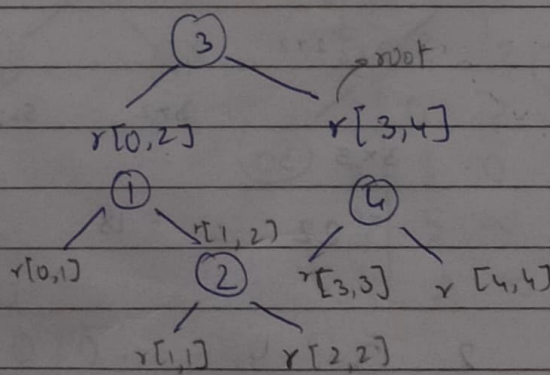 3
root
r[0,2] r[3,4]
1 4
r[0,1] r[1,2] r[3,3] r[4,4]
2
r[1,1] r[2,2]